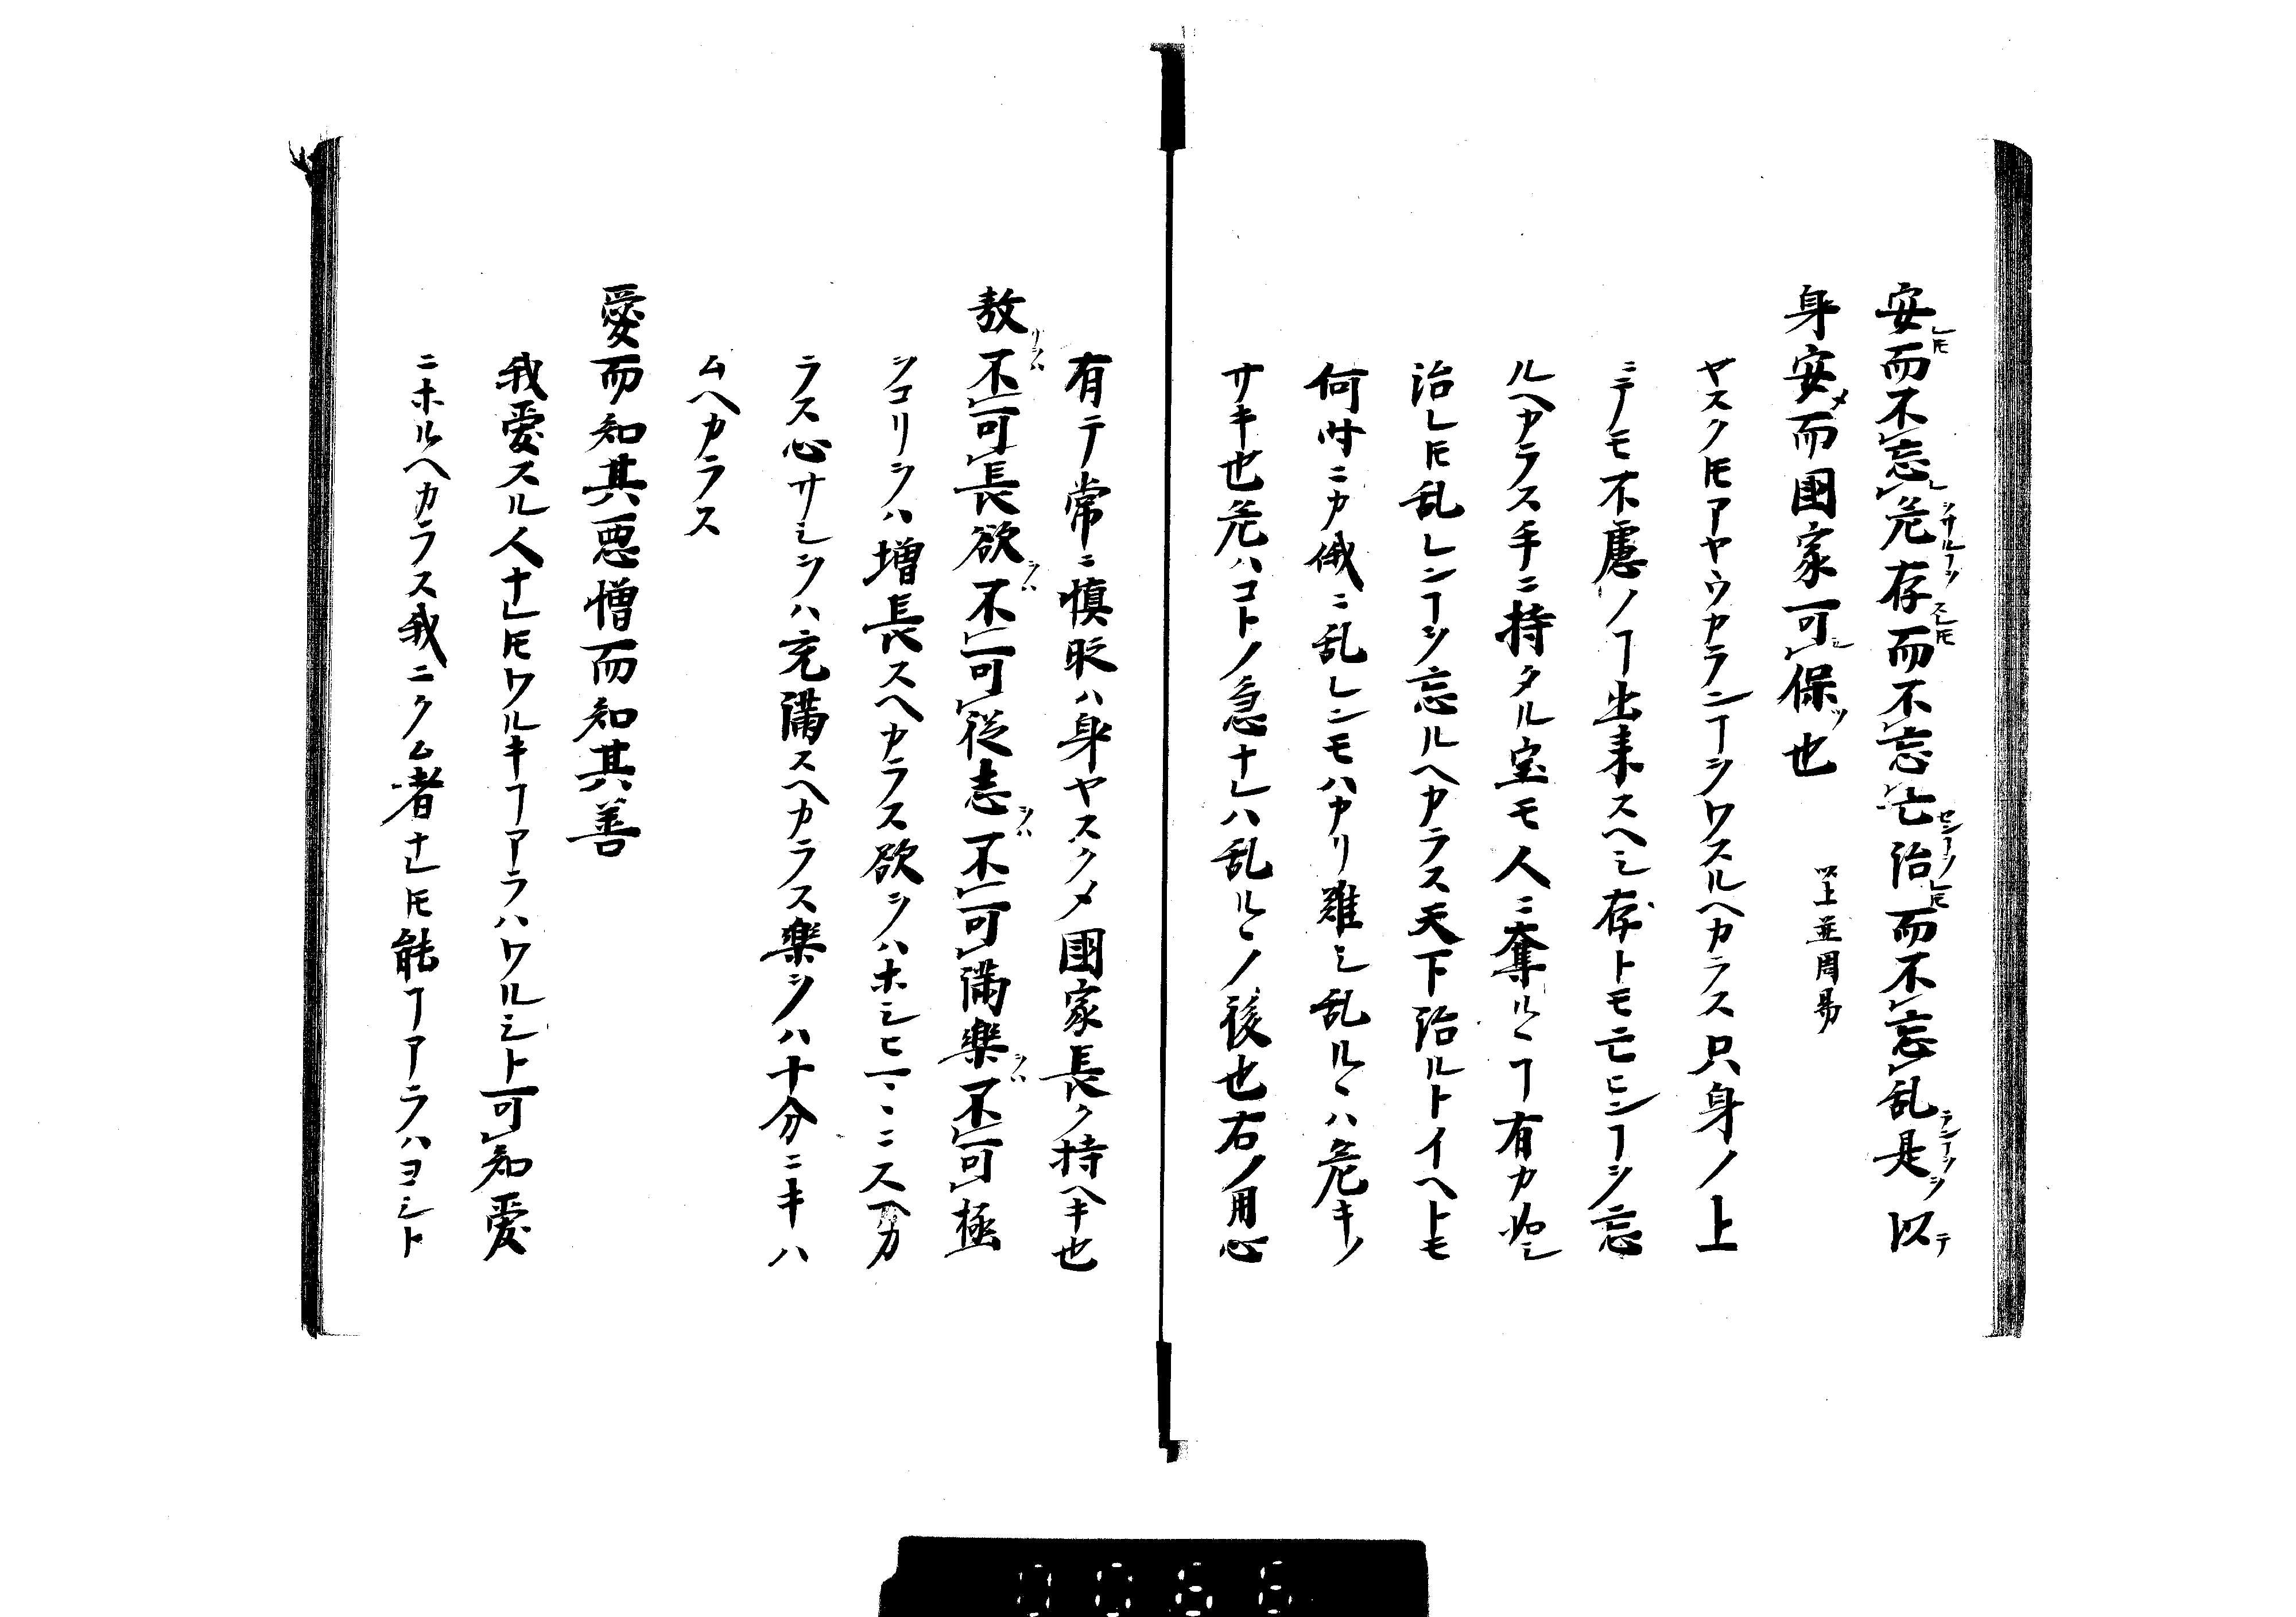 安而不忘危存而不忘亡治而不忘乱是以
身安メ而国家可保也 以上並周易
ヤスクㇳモアヤウカランヿヲワスルヘカラス只身ノ上
ニテモ不慮ノヿ出来スヘシ存トモ亡ヒンヿヲ忘
ルヘカラス手ニ持タル宝モ人ニ奪ルヽヿ有カ如シ
治レㇳモ乱レンヿヲ忘ルヘカラス天下治ルトイヘトモ
何時ニカ俄ニ乱レンモハカリ難シ乱ルヽハ危キノ
サキ也危ハコトノ急ナレハ乱ルヽノ後也右ノ用心
有テ常ニ慎時ハ身ヤスクメ国家長ク持ヘキ也
敖不可長欲不可従志不可満楽不可極
ヲコリヲハ増長スヘカラス欲ヲハホシヒマヽニスヘカ
ラス心サシヲハ充満スヘカラス楽ヲハ十分ニキハ
ムヘカラス
愛而知其悪憎而知其善
我愛スル人ナレㇳモワルキヿアラハワルシト可知愛
ニホルヘカラス我ニクム者ナレㇳモ能ヿアラハヨシト